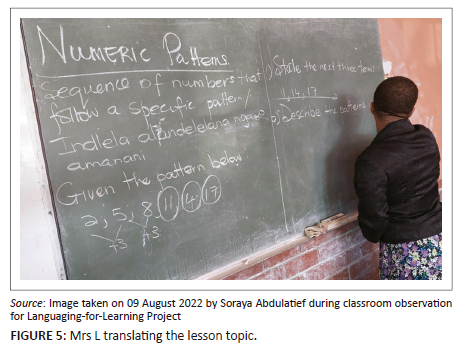 NUMERIC Patterns
Sequence of numbers that
follow a specific pattern/
Indlela
amanani
Given the pattern below
2, 5, 8, 11 14 17
+3 +3
1) State the next three terms
11, 14, 17
Describe the pattern
Source: Image taken on 09 August 2022 by Soraya Abdulatief during classroom observation
for Languaging-for-Learning Project
FIGURE 5: Mrs L translating the lesson topic.